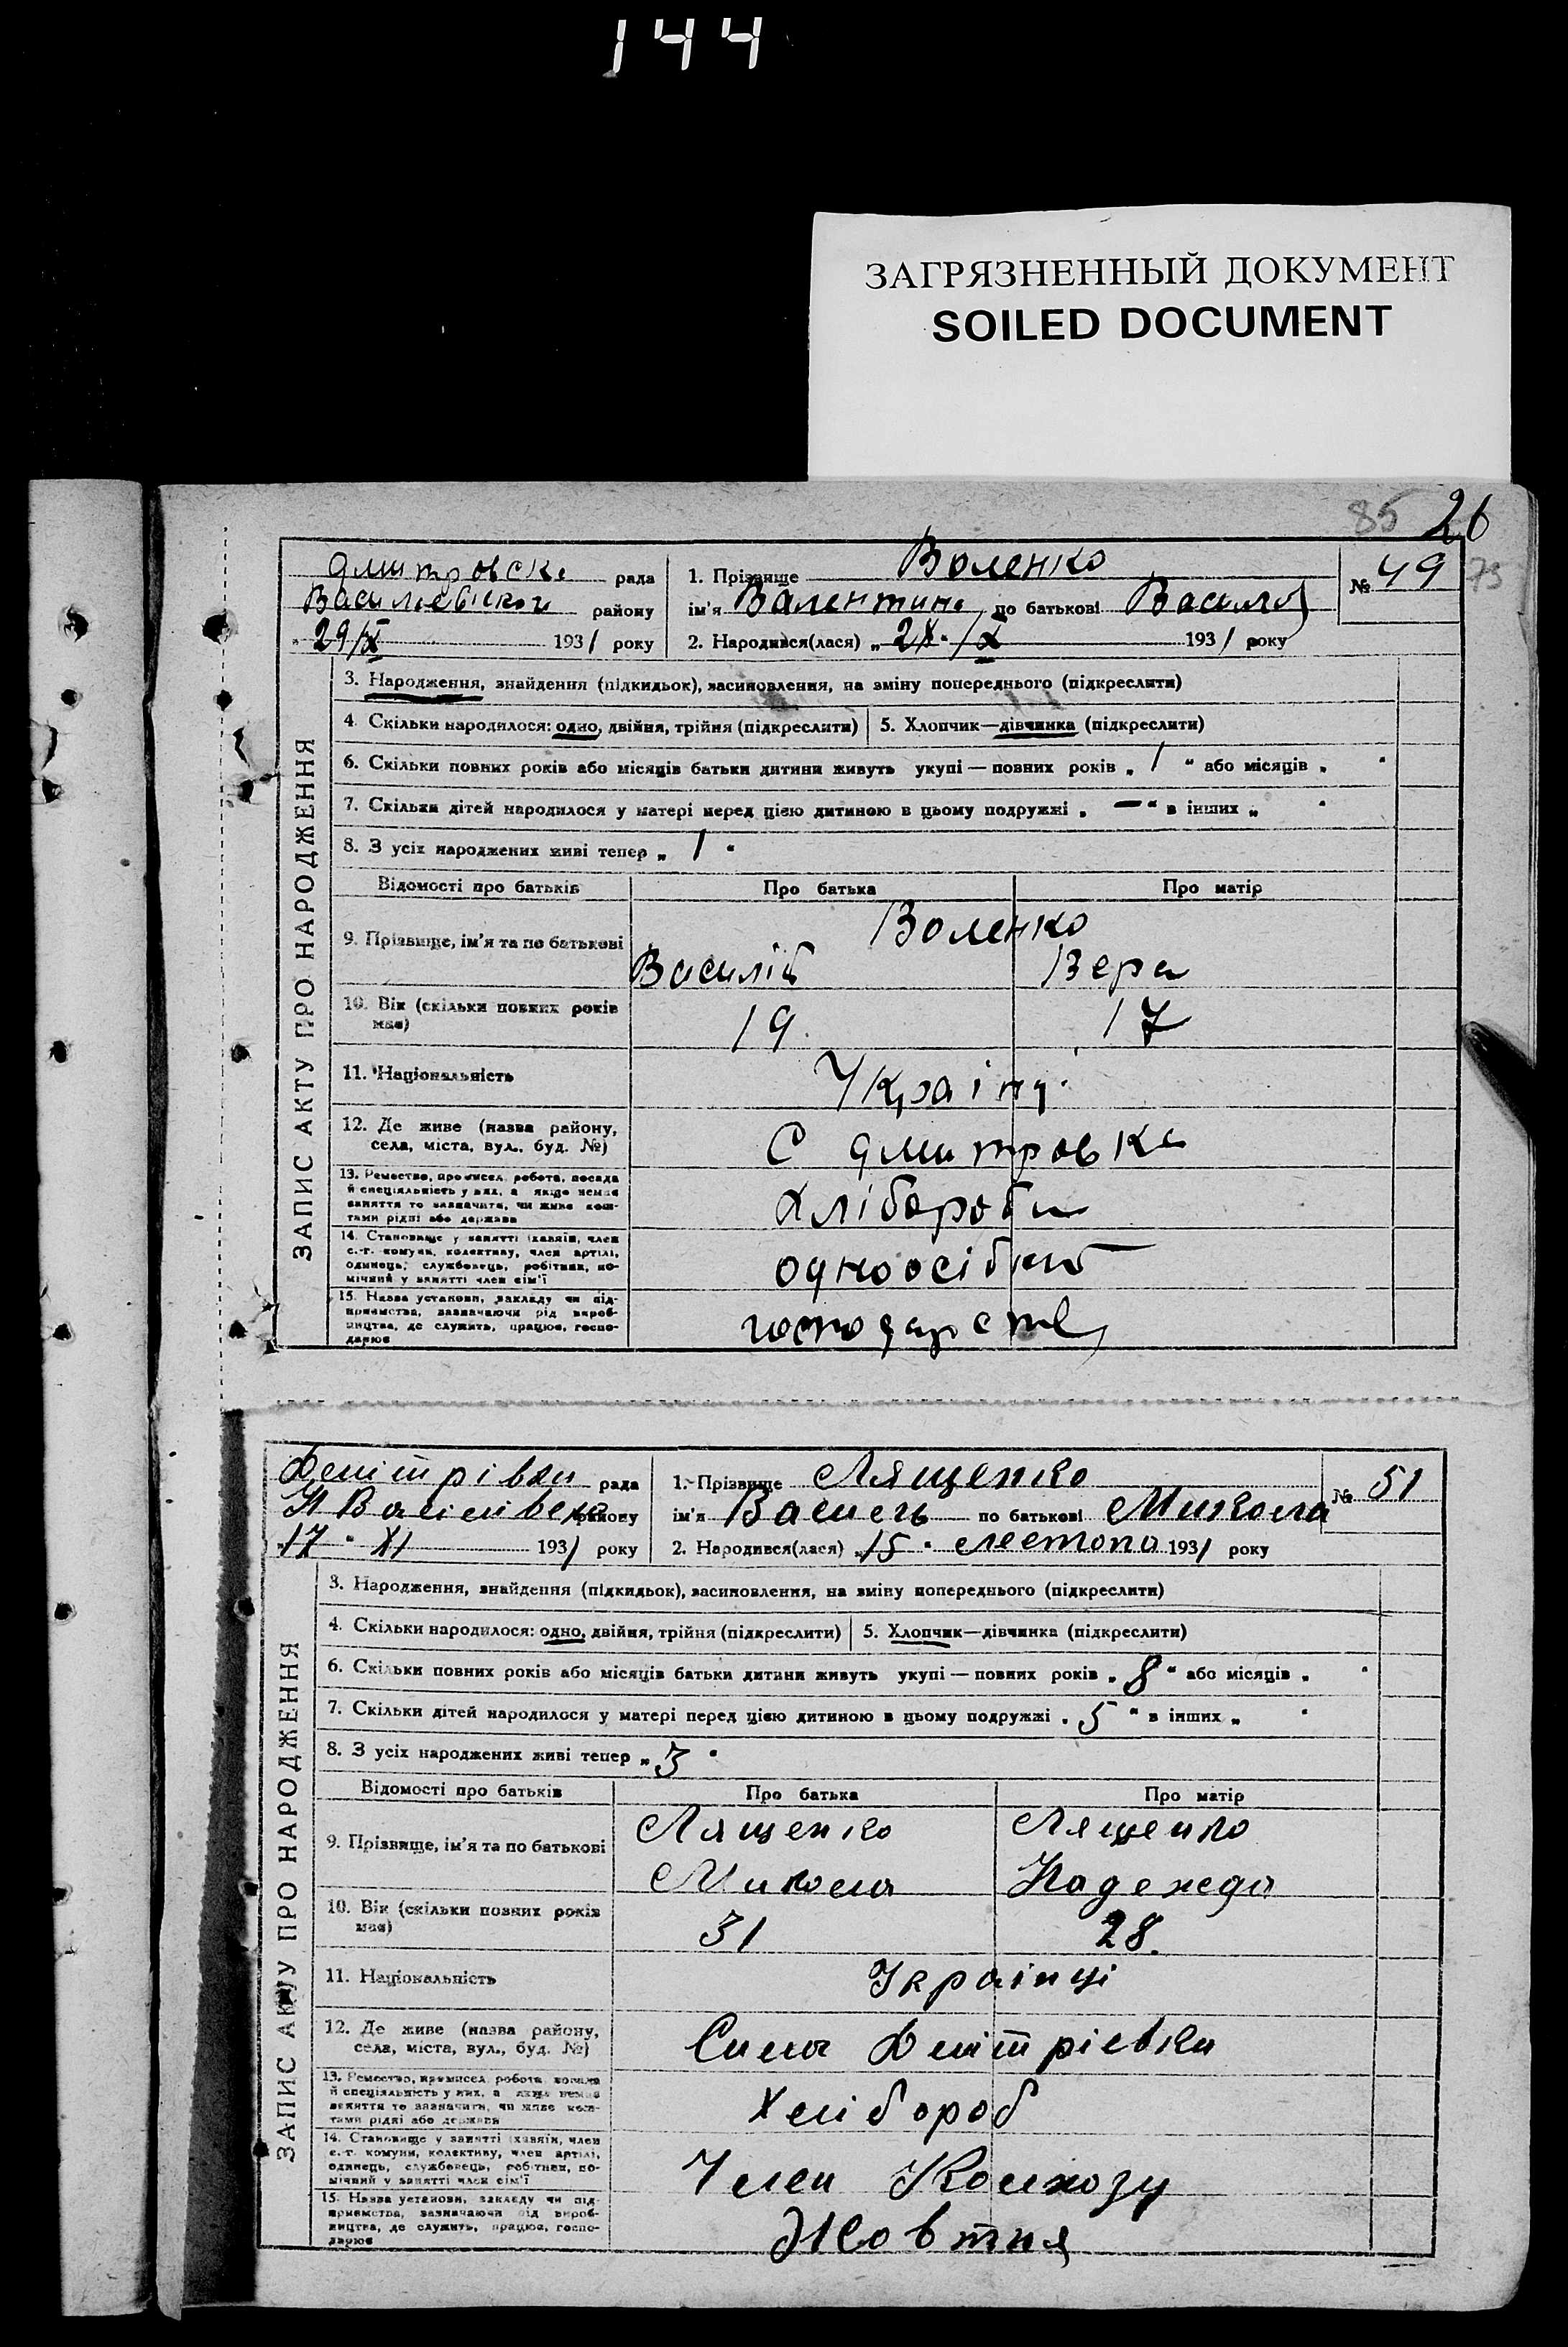 144
ЗАГРЯЗНЕННЫЙ ДОКУМЕНТ
SOILED DOCUMENT
85 26
75
ЗАПИС АКТУ ПРО НАРОДЖЕННЯ
Дмитровска рада
Васильевской району
29/X 1931 року
1. Прізвище Воленко
№ 49
ім'я Валентина по батькові Васил
2. Народився(лася) „ /X 1931 року
3. Народження, знайдення (підкидьок), засиновлення, на зміну попереднього (підкреслити)
4. Скільки народилося: одно, двійня, трійня (підкреслити) 5. Хлопчик—дівчинка (підкреслити)
6. Скільки повних років або місяців батьки дитини живуть укупі — повних років „ 1 " або місяців „ "
7. Скільки дітей народилося у матері перед цією дитиною в цьому подружжі „ — " в інших „ "
8. З усіх народжених живі тепер „ 1 "
Відомості про батьків Про батька Про матір
9. Прізвище, ім'я та по батькові Воленко
Василій Вера
10. Вік (скільки повних років має) 19. 17
11. Національність Україн
12. Де живе (назва району, села, міста, вул., буд. №) С Дмитровка
13. Ремество, промисел, робота, посада й спеціяльність у них, а якщо немає заняття то зазначити, чи живе коштами рідні або держави Хлібороби
14. Становище у занятті (хазяїн, член с.-г. комуни, колективу, член артілі, одинець, службовець, робітник, помічний у занятті член сім'ї одноосібне
15. Назва установи, закладу чи підприємства, зазначаючи рід виробництва, де служить, працює, господарює господарств
ЗАПИС АКТУ ПРО НАРОДЖЕННЯ
Дмітрівки рада
Н Васілівськ району
17 " XI 1931 року
1. Прізвище Лященко
№ 51
ім'я Василь по батькові Микола
2. Народився(лася) „ 15 " лестопа 1931 року
3. Народження, знайдення (підкидьок), засиновлення, на зміну попереднього (підкреслити)
4. Скільки народилося: одно, двійня, трійня (підкреслити) 5. Хлопчик—дівчинка (підкреслити)
6. Скільки повних років або місяців батьки дитини живуть укупі — повних років „ 8 " або місяців „ "
7. Скільки дітей народилося у матері перед цією дитиною в цьому подружжі „ 5 " в інших „ "
8. З усіх народжених живі тепер „ 3 "
Відомості про батьків Про батька Про матір
9. Прізвище, ім'я та по батькові Лященко Лященко
Микола Надежда
10. Вік (скільки повних років має) 31 28.
11. Національність Українці
12. Де живе (назва району, села, міста, вул., буд. №) Сила Дмітріевки
13. Ремество, промисел, робота, посада й спеціяльність у них, а якщо немає заняття то зазначити, чи живе коштами рідні або держави Хлібороб
14. Становище у занятті (хазяїн, член с.-г. комуни, колективу, член артілі, одинець, службовець, робітник, помічний у занятті член сім'ї Член Колхозу
15. Назва установи, закладу чи підприємства, зазначаючи рід виробництва, де служить, працює, господарює Жовтня